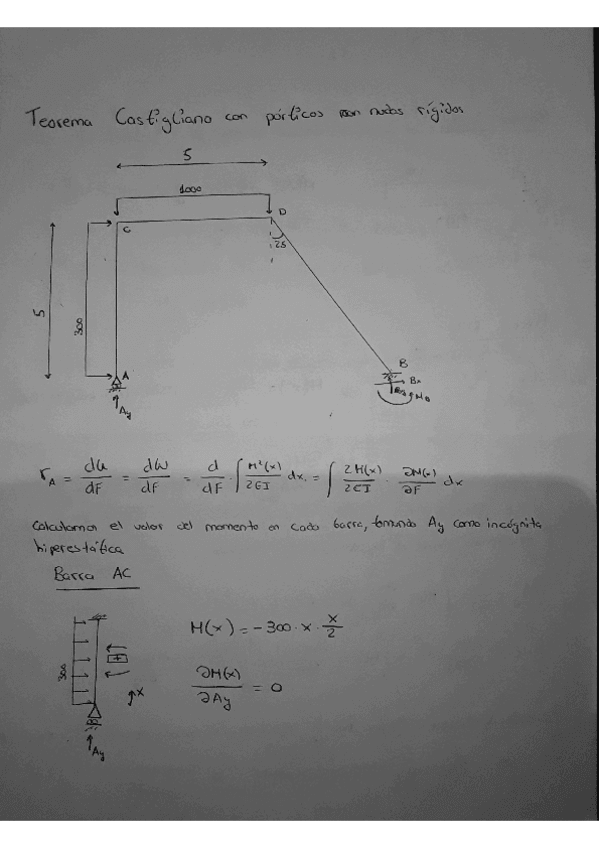 Teorema Castigliano con pórticos con nudos rígidos
5
1000
C
D
25
5
300
A
Ay
B
Bx
By
MB
r_A = du/dF = dW/dF = d/dF · ∫ M²(x)/2EI dx = ∫ 2M(x)/2EI · ∂M(x)/∂F dx
Calculamos el valor del momento en cada barra, tomando Ay como incógnita
hiperestática
Barra AC
M(x) = -300 · x · x/2
300
+
x
∂M(x)/∂Ay = 0
Ay